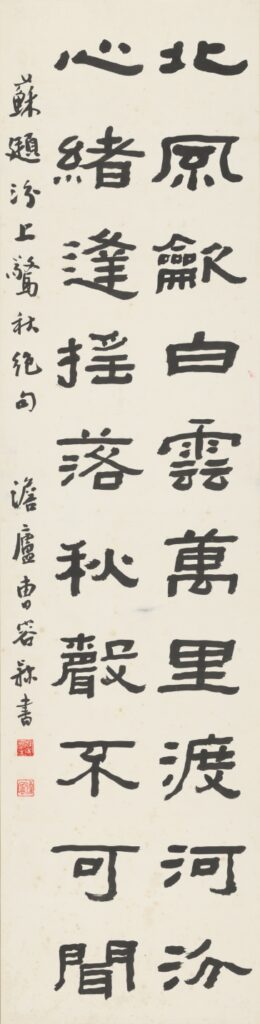 北風龡白雲萬里渡河汾
心緒逢搖落秋聲不可聞
蘇頲汾上驚秋絕句 澹廬曹容書